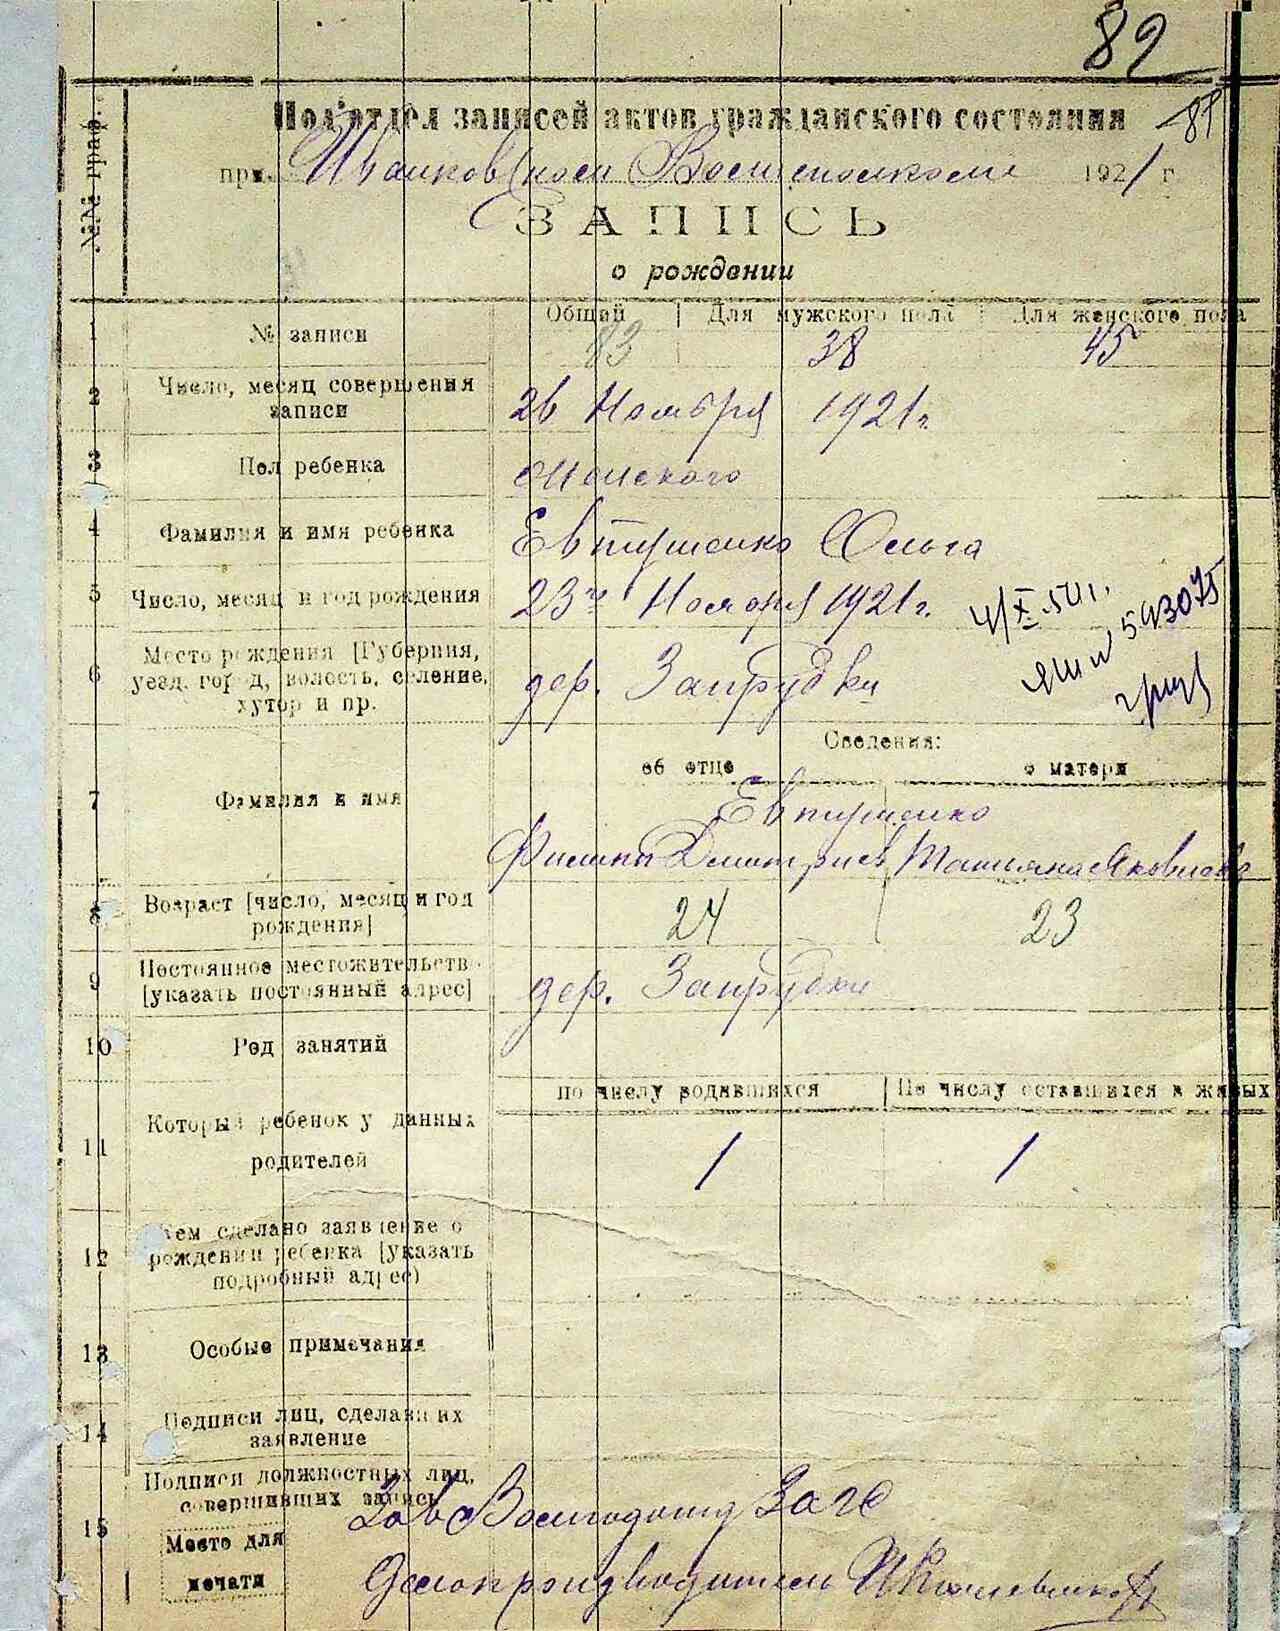 82
81
Подотдел записей актов гражданского состояния
при Иванковском Волисполкоме 1921 г.
ЗАПИСЬ
о рождении
№№ граф.
Общий | Для мужского пола | Для женского пола
1 № записи 83 38 45
2 Число, месяц совершения записи 26 Ноября 1921 г.
3 Пол ребенка Женского
4 Фамилия и имя ребенка Евтушенко Ольга
5 Число, месяц и год рождения 23го Ноября 1921 г.
4/X 50 г.
593075
6 Место рождения [Губерния,
уезд, город, волость, селение,
хутор и пр. дер. Запрудки
Сведения:
об отце о матери
7 Фамилия и имя Евтушенко
Филипп Дмитриев Татьяна Яковлева
8 Возраст [число, месяц и год
рождения] 24 23
9 Постоянное местожительство
[указать постоянный адрес] дер. Запрудки
10 Род занятий
по числу родившихся | По числу оставшихся в живых
11 Который ребенок у данных
родителей 1 1
12 Кем сделано заявление о
рождении ребенка [указать
подробный адрес)
13 Особые примечания
14 Подписи лиц, сделавших
заявление
15 Подписи должностных лиц,
совершивших запись
Зав Волподотд Загс
Место для
печати
Делопроизводитель